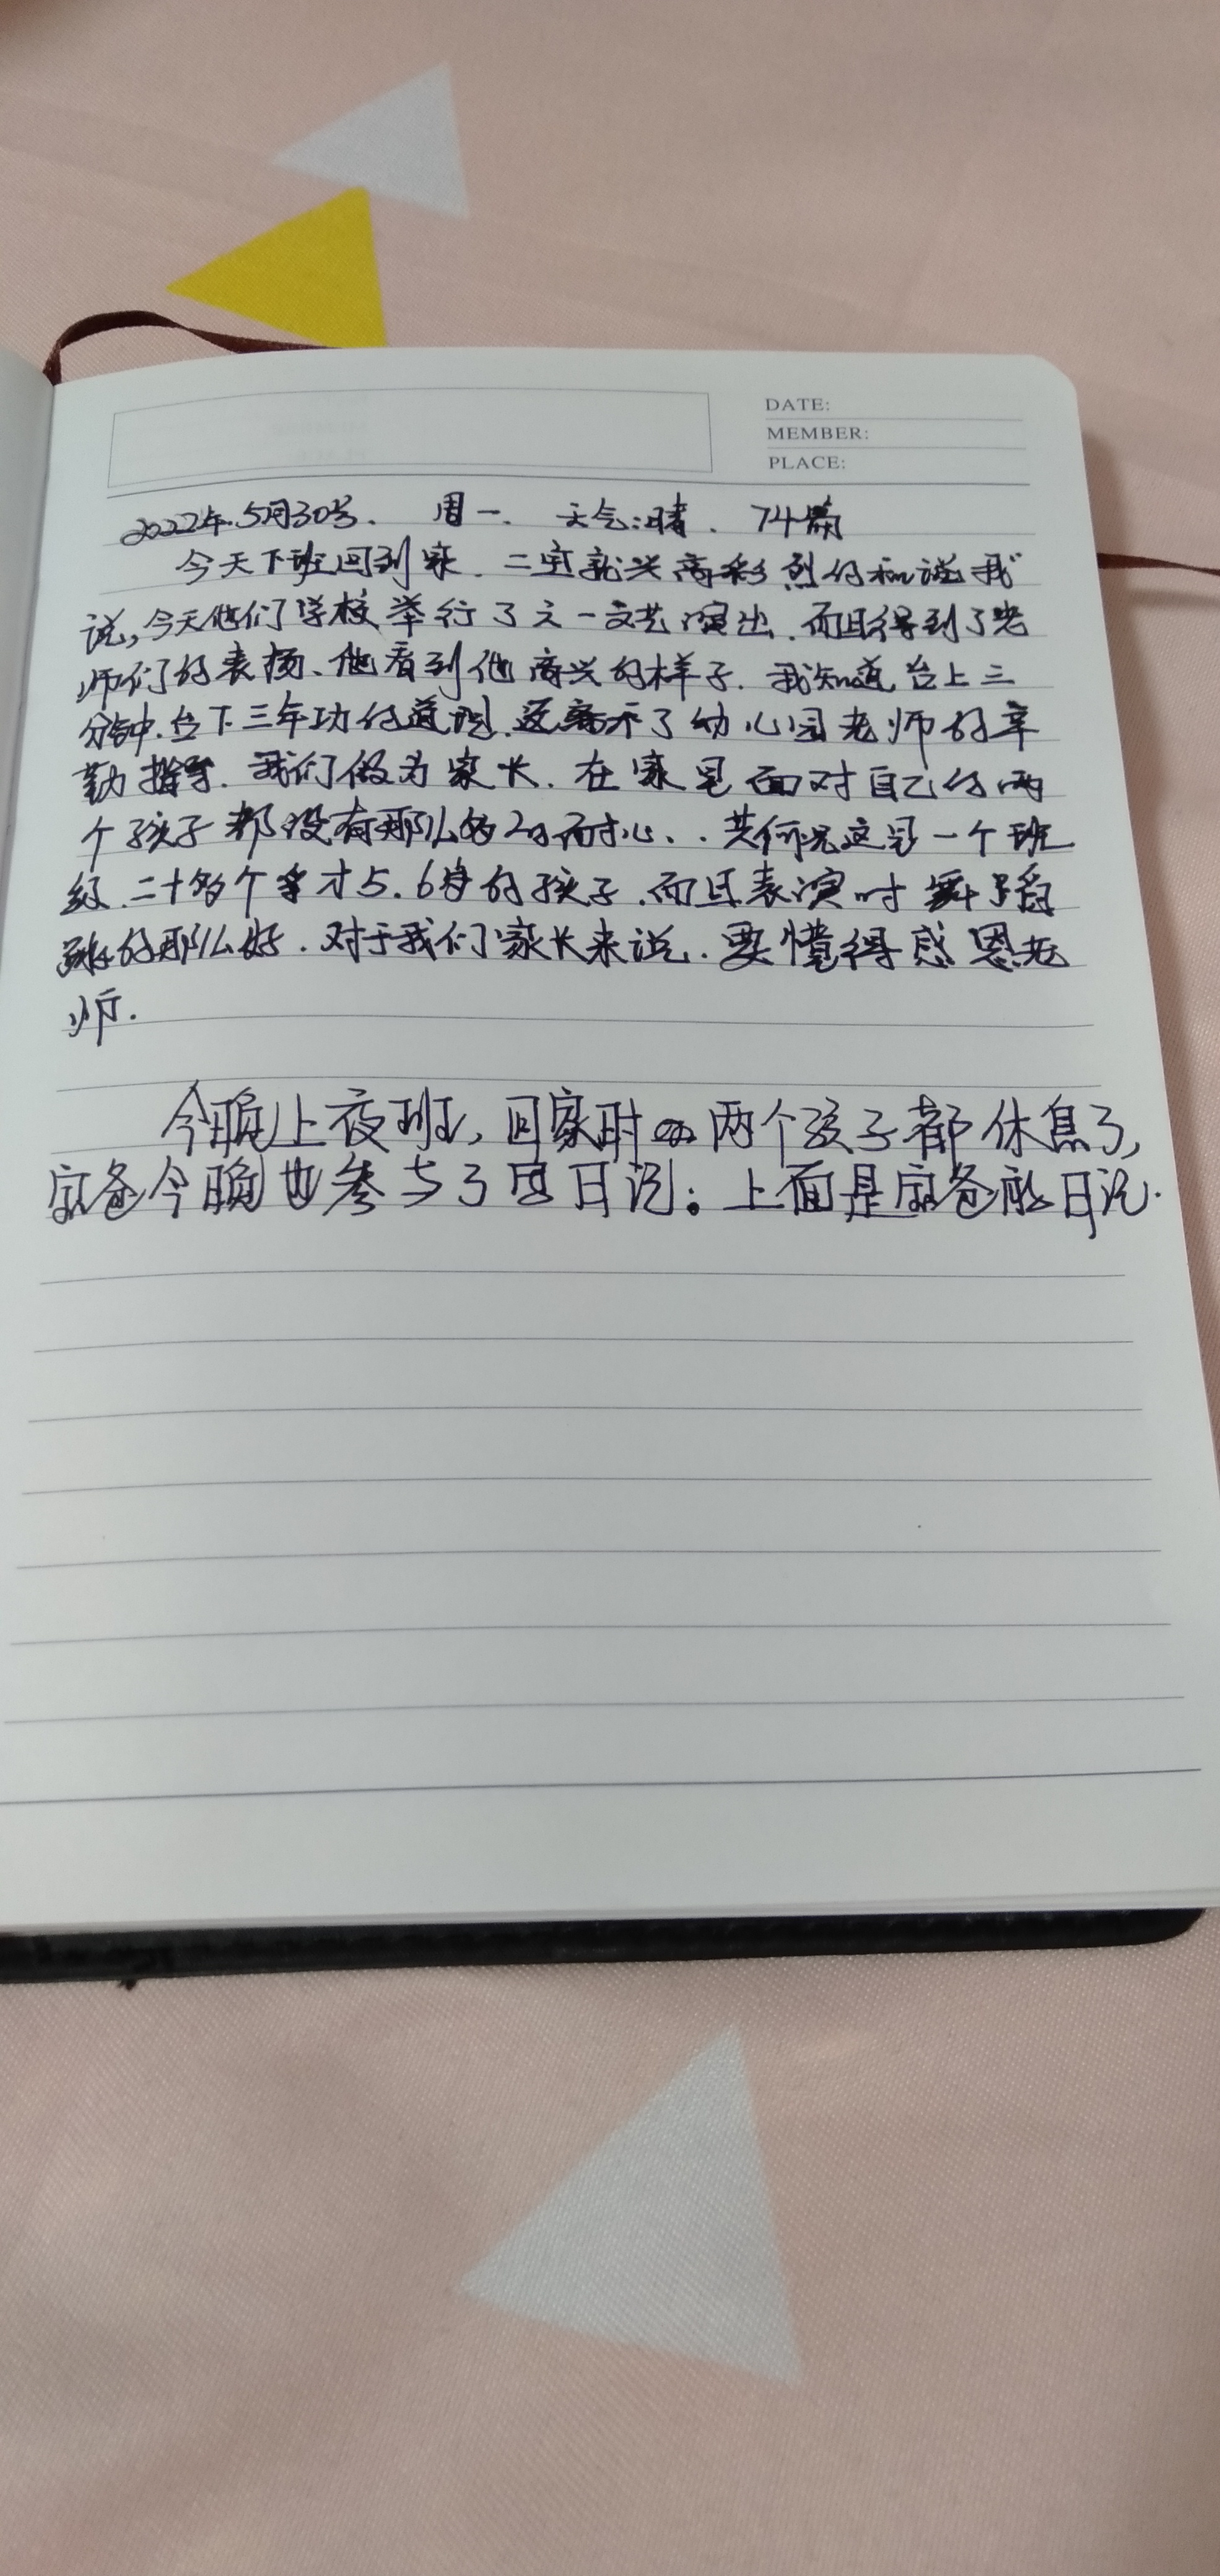 DATE:
MEMBER:
PLACE:
2022年.5月30号. 周一. 天气:晴. 74篇
今天下班回到家.二宝就兴高彩烈的和我
说,今天他们学校举行了六一文艺演出.而且得到了老
师们的表扬、他看到他高兴的样子.我知道台上三
分钟.台下三年功的道理.这离不了幼儿园老师的辛
勤指导.我们做为家长.在家里面对自己的两
个孩子都没有那么的耐心..其何况这是一个班
级.二十多个才5.6岁的孩子.而且表演时舞蹈
跳的那么好.对于我们家长来说.要懂得感恩老
师.
今晚上夜班,回家时两个孩子都休息了,
宝爸今晚也参与了写日记。上面是宝爸的日记.